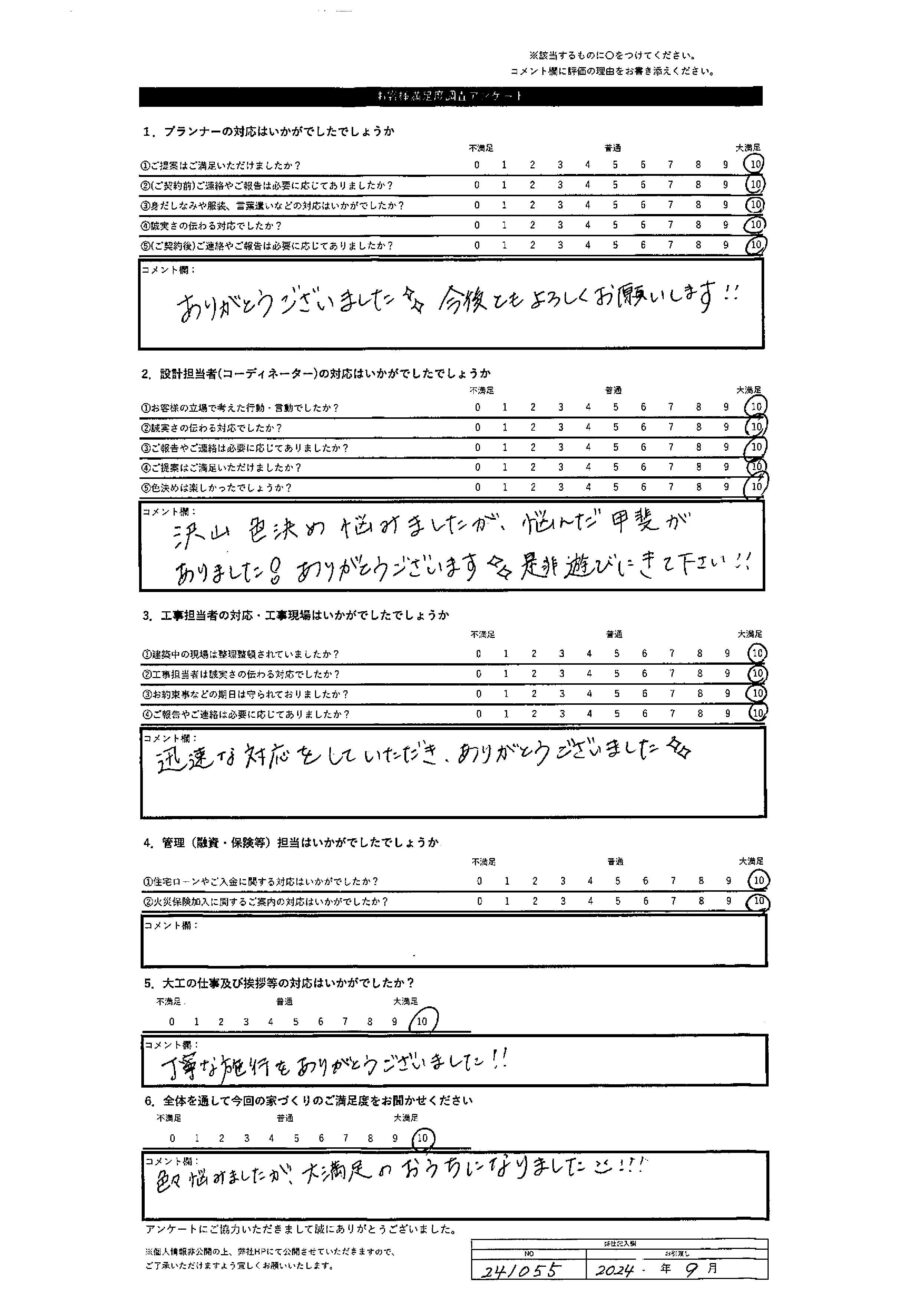 ※該当するものに〇をつけてください。
コメント欄に評価の理由をお書き添えください。
お客様満足度調査アンケート
1．プランナーの対応はいかがでしたでしょうか
不満足 普通 大満足
①ご提案はご満足いただけましたか？ 0 1 2 3 4 5 6 7 8 9 10
②(ご契約前)ご連絡やご報告は必要に応じてありましたか？ 0 1 2 3 4 5 6 7 8 9 10
③身だしなみや服装、言葉遣いなどの対応はいかがでしたか？ 0 1 2 3 4 5 6 7 8 9 10
④誠実さの伝わる対応でしたか？ 0 1 2 3 4 5 6 7 8 9 10
⑤(ご契約後)ご連絡やご報告は必要に応じてありましたか？ 0 1 2 3 4 5 6 7 8 9 10
コメント欄：
ありがとうございました☆☆ 今後ともよろしくお願いします!!
2．設計担当者(コーディネーター)の対応はいかがでしたでしょうか
不満足 普通 大満足
①お客様の立場で考えた行動・言動でしたか？ 0 1 2 3 4 5 6 7 8 9 10
②誠実さの伝わる対応でしたか？ 0 1 2 3 4 5 6 7 8 9 10
③ご報告やご連絡は必要に応じてありましたか？ 0 1 2 3 4 5 6 7 8 9 10
④ご提案はご満足いただけましたか？ 0 1 2 3 4 5 6 7 8 9 10
⑤色決めは楽しかったでしょうか？ 0 1 2 3 4 5 6 7 8 9 10
コメント欄：
沢山 色決め 悩みましたが、悩んだ甲斐が
ありました! ありがとうございます☆☆ 是非遊びにきて下さい!!
3．工事担当者の対応・工事現場はいかがでしたでしょうか
不満足 普通 大満足
①建築中の現場は整理整頓されていましたか？ 0 1 2 3 4 5 6 7 8 9 10
②工事担当者は誠実さの伝わる対応でしたか？ 0 1 2 3 4 5 6 7 8 9 10
③お約束事などの期日は守られておりましたか？ 0 1 2 3 4 5 6 7 8 9 10
④ご報告やご連絡は必要に応じてありましたか？ 0 1 2 3 4 5 6 7 8 9 10
コメント欄：
迅速な対応をしていただき、ありがとうございました☆☆
4．管理（融資・保険等）担当はいかがでしたでしょうか
不満足 普通 大満足
①住宅ローンやご入金に関する対応はいかがでしたか？ 0 1 2 3 4 5 6 7 8 9 10
②火災保険加入に関するご案内の対応はいかがでしたか？ 0 1 2 3 4 5 6 7 8 9 10
コメント欄：
5．大工の仕事及び挨拶等の対応はいかがでしたか？
不満足 普通 大満足
0 1 2 3 4 5 6 7 8 9 10
コメント欄：
丁寧な施行をありがとうございました!!
6．全体を通して今回の家づくりのご満足度をお聞かせください
不満足 普通 大満足
0 1 2 3 4 5 6 7 8 9 10
コメント欄：
色々悩みましたが、大満足のおうちになりました!!!
アンケートにご協力いただきまして誠にありがとうございました。
※個人情報非公開の上、弊社HPにて公開させていただきますので、
ご了承いただけますよう宜しくお願いいたします。
弊社記入欄
NO お引渡し
241055 2024．年 9月